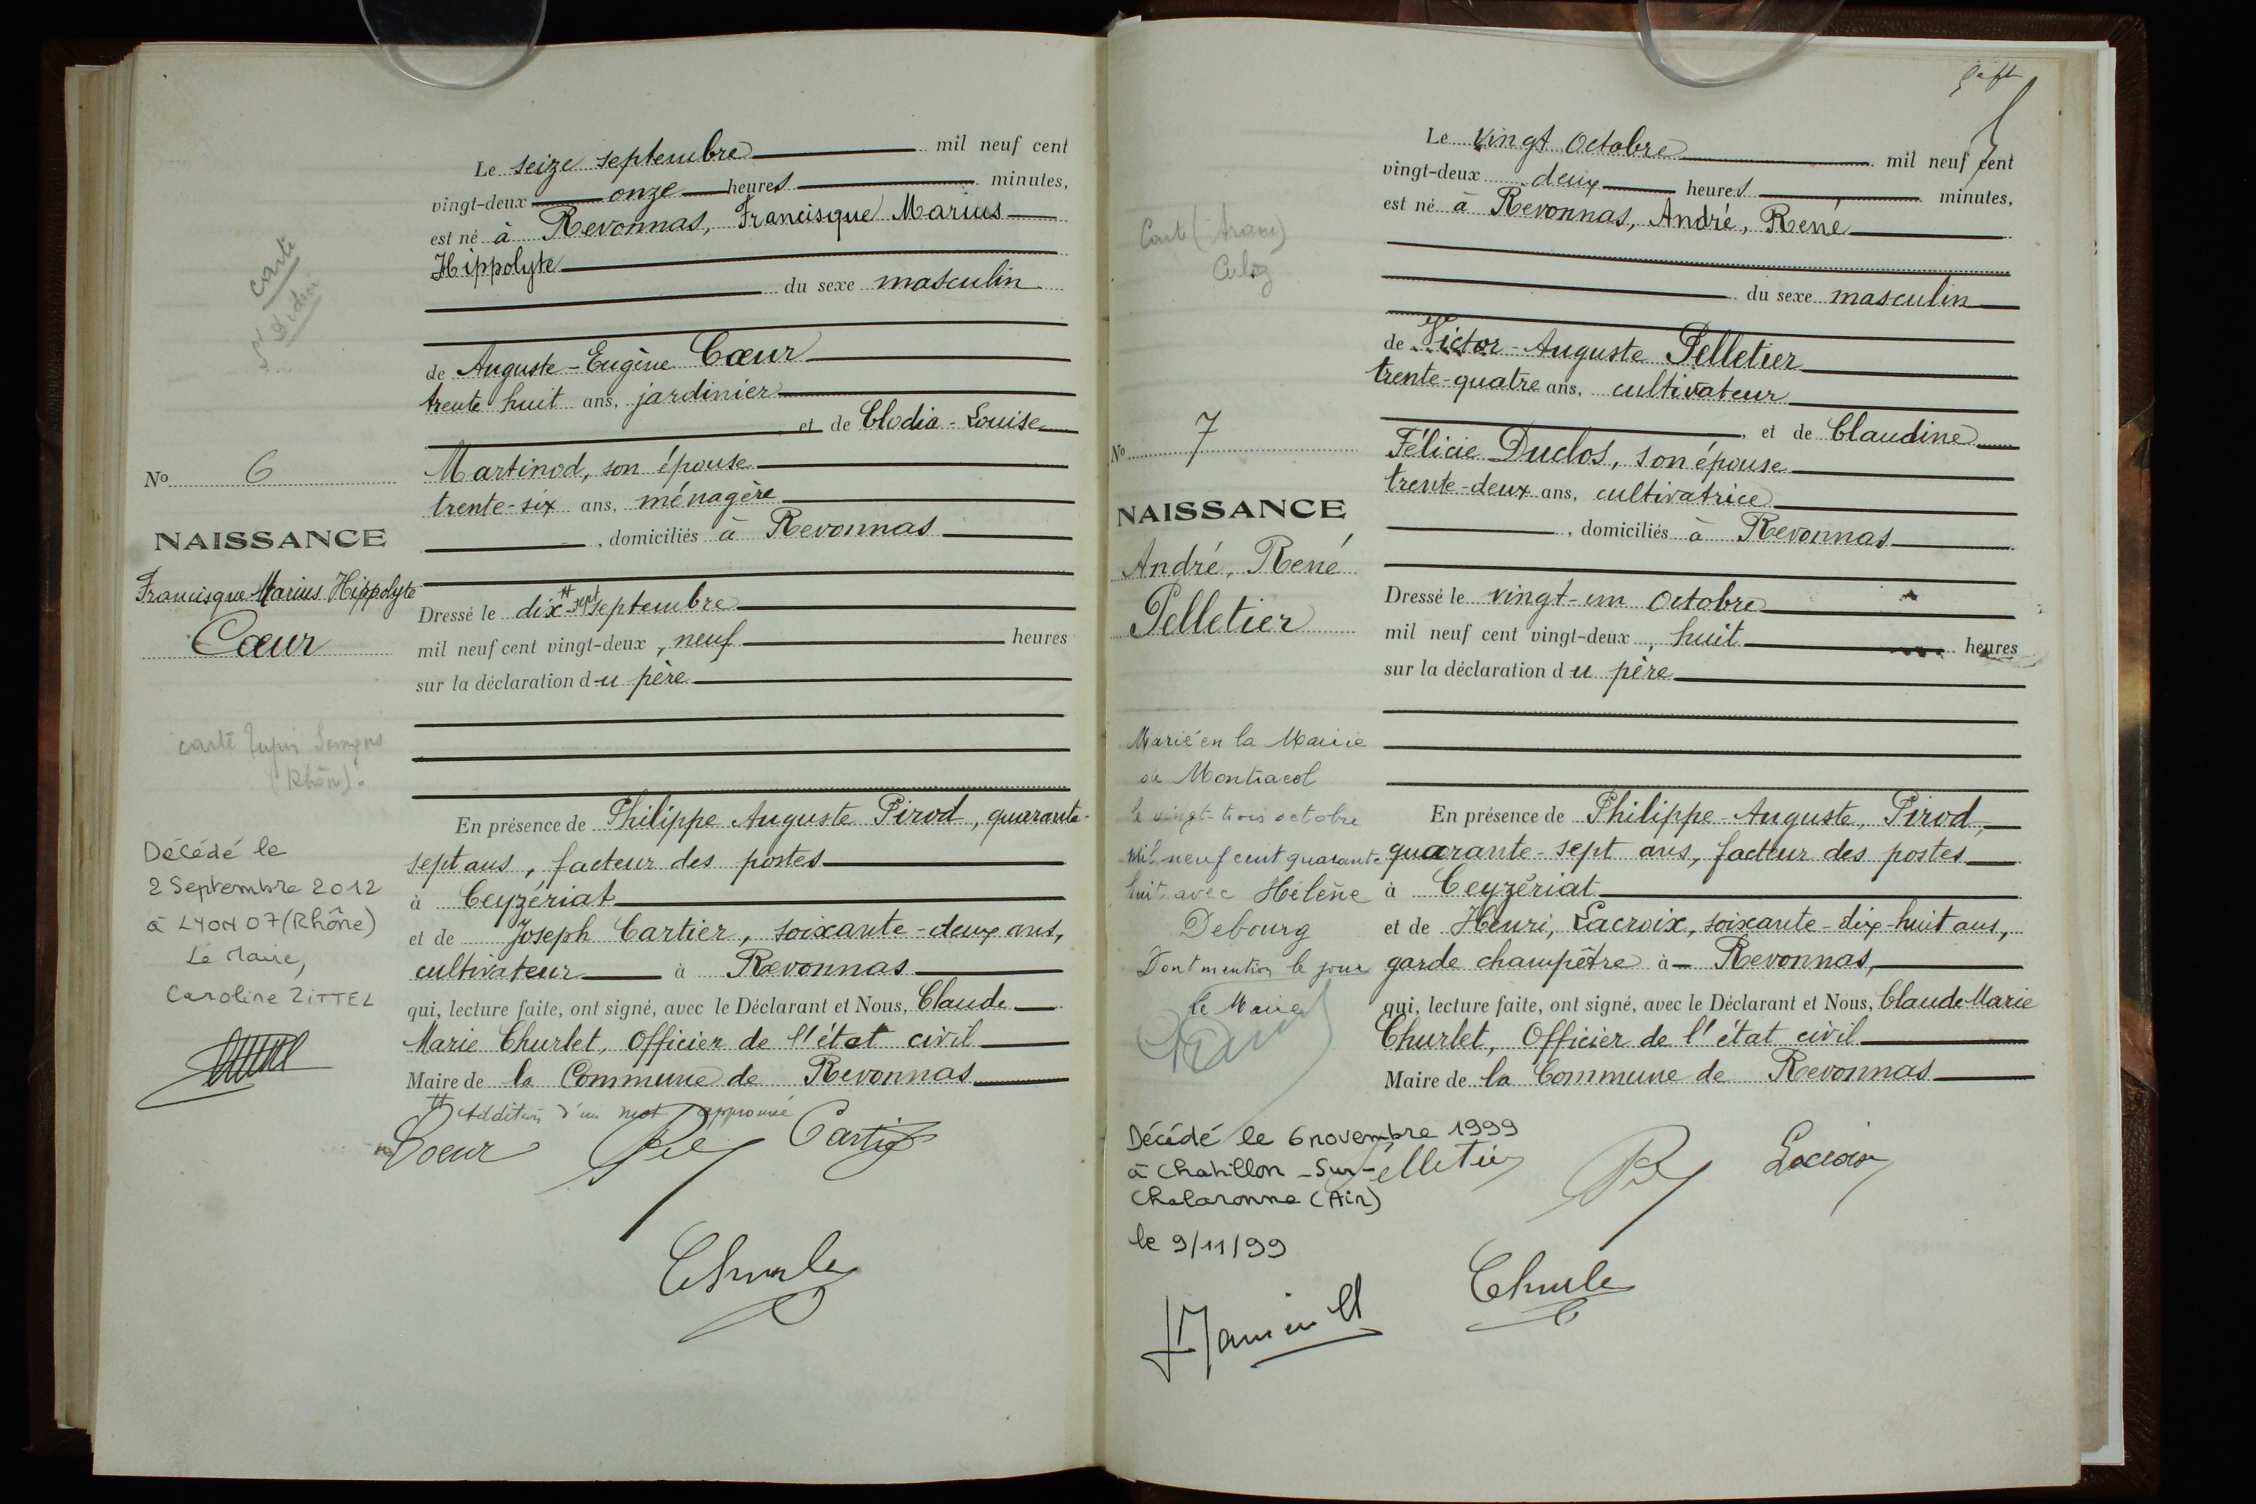 Le seize septembre mil neuf cent
vingt-deux onze heures minutes,
est né à Revonnas, Francisque Marius
Hippolyte
du sexe masculin
de Auguste-Eugène Cœur
trente huit ans, jardinier
et de Clodia-Louise
Martinod, son épouse
trente-six ans, ménagère
, domiciliés à Revonnas
Dressé le dix tt sept septembre
mil neuf cent vingt-deux, neuf heures
sur la déclaration du père
En présence de Philippe Auguste Pirod, quarante-
sept ans, facteur des postes
à Ceyzériat
et de Joseph Cartier, soixante-deux ans,
cultivateur à Revonnas
qui, lecture faite, ont signé, avec le Déclarant et Nous, Claude
Marie Churlet, Officier de l'état civil
Maire de la Commune de Revonnas
tt Addition d'un mot approuvé
Coeur Cartier
Churlet
carté
St Didier
No 6
NAISSANCE
Francisque Marius Hippolyte
Cœur
carté
(Rhône).
Décédé le
2 Septembre 2012
à LYON 07 (Rhône)
Le Maire,
Caroline ZITTEL
Le vingt octobre mil neuf cent
vingt-deux deux heures minutes,
est né à Revonnas, André, René
du sexe masculin
de Victor-Auguste Pelletier
trente-quatre ans, cultivateur
, et de Claudine
Félicie Duclos, son épouse
trente-deux ans, cultivatrice
, domiciliés à Revonnas
Dressé le vingt-un octobre
mil neuf cent vingt-deux, huit heures
sur la déclaration du père
En présence de Philippe-Auguste, Pirod,
quarante-sept ans, facteur des postes
à Ceyzériat
et de Henri, Lacroix, soixante-dix-huit ans,
garde champêtre à Revonnas,
qui, lecture faite, ont signé, avec le Déclarant et Nous, Claude Marie
Churlet, Officier de l'état civil
Maire de la Commune de Revonnas
Pelletier Lacroix
Churlet
No 7
NAISSANCE
André, René
Pelletier
Marié en la Mairie
de Montracol
le vingt-trois octobre
mil neuf cent quarante
huit avec Hélène
Debourg
Dont mention le jour
le Maire
Décédé le 6 novembre 1999
à Chatillon-Sur-
Chalaronne (Ain)
le 9/11/99